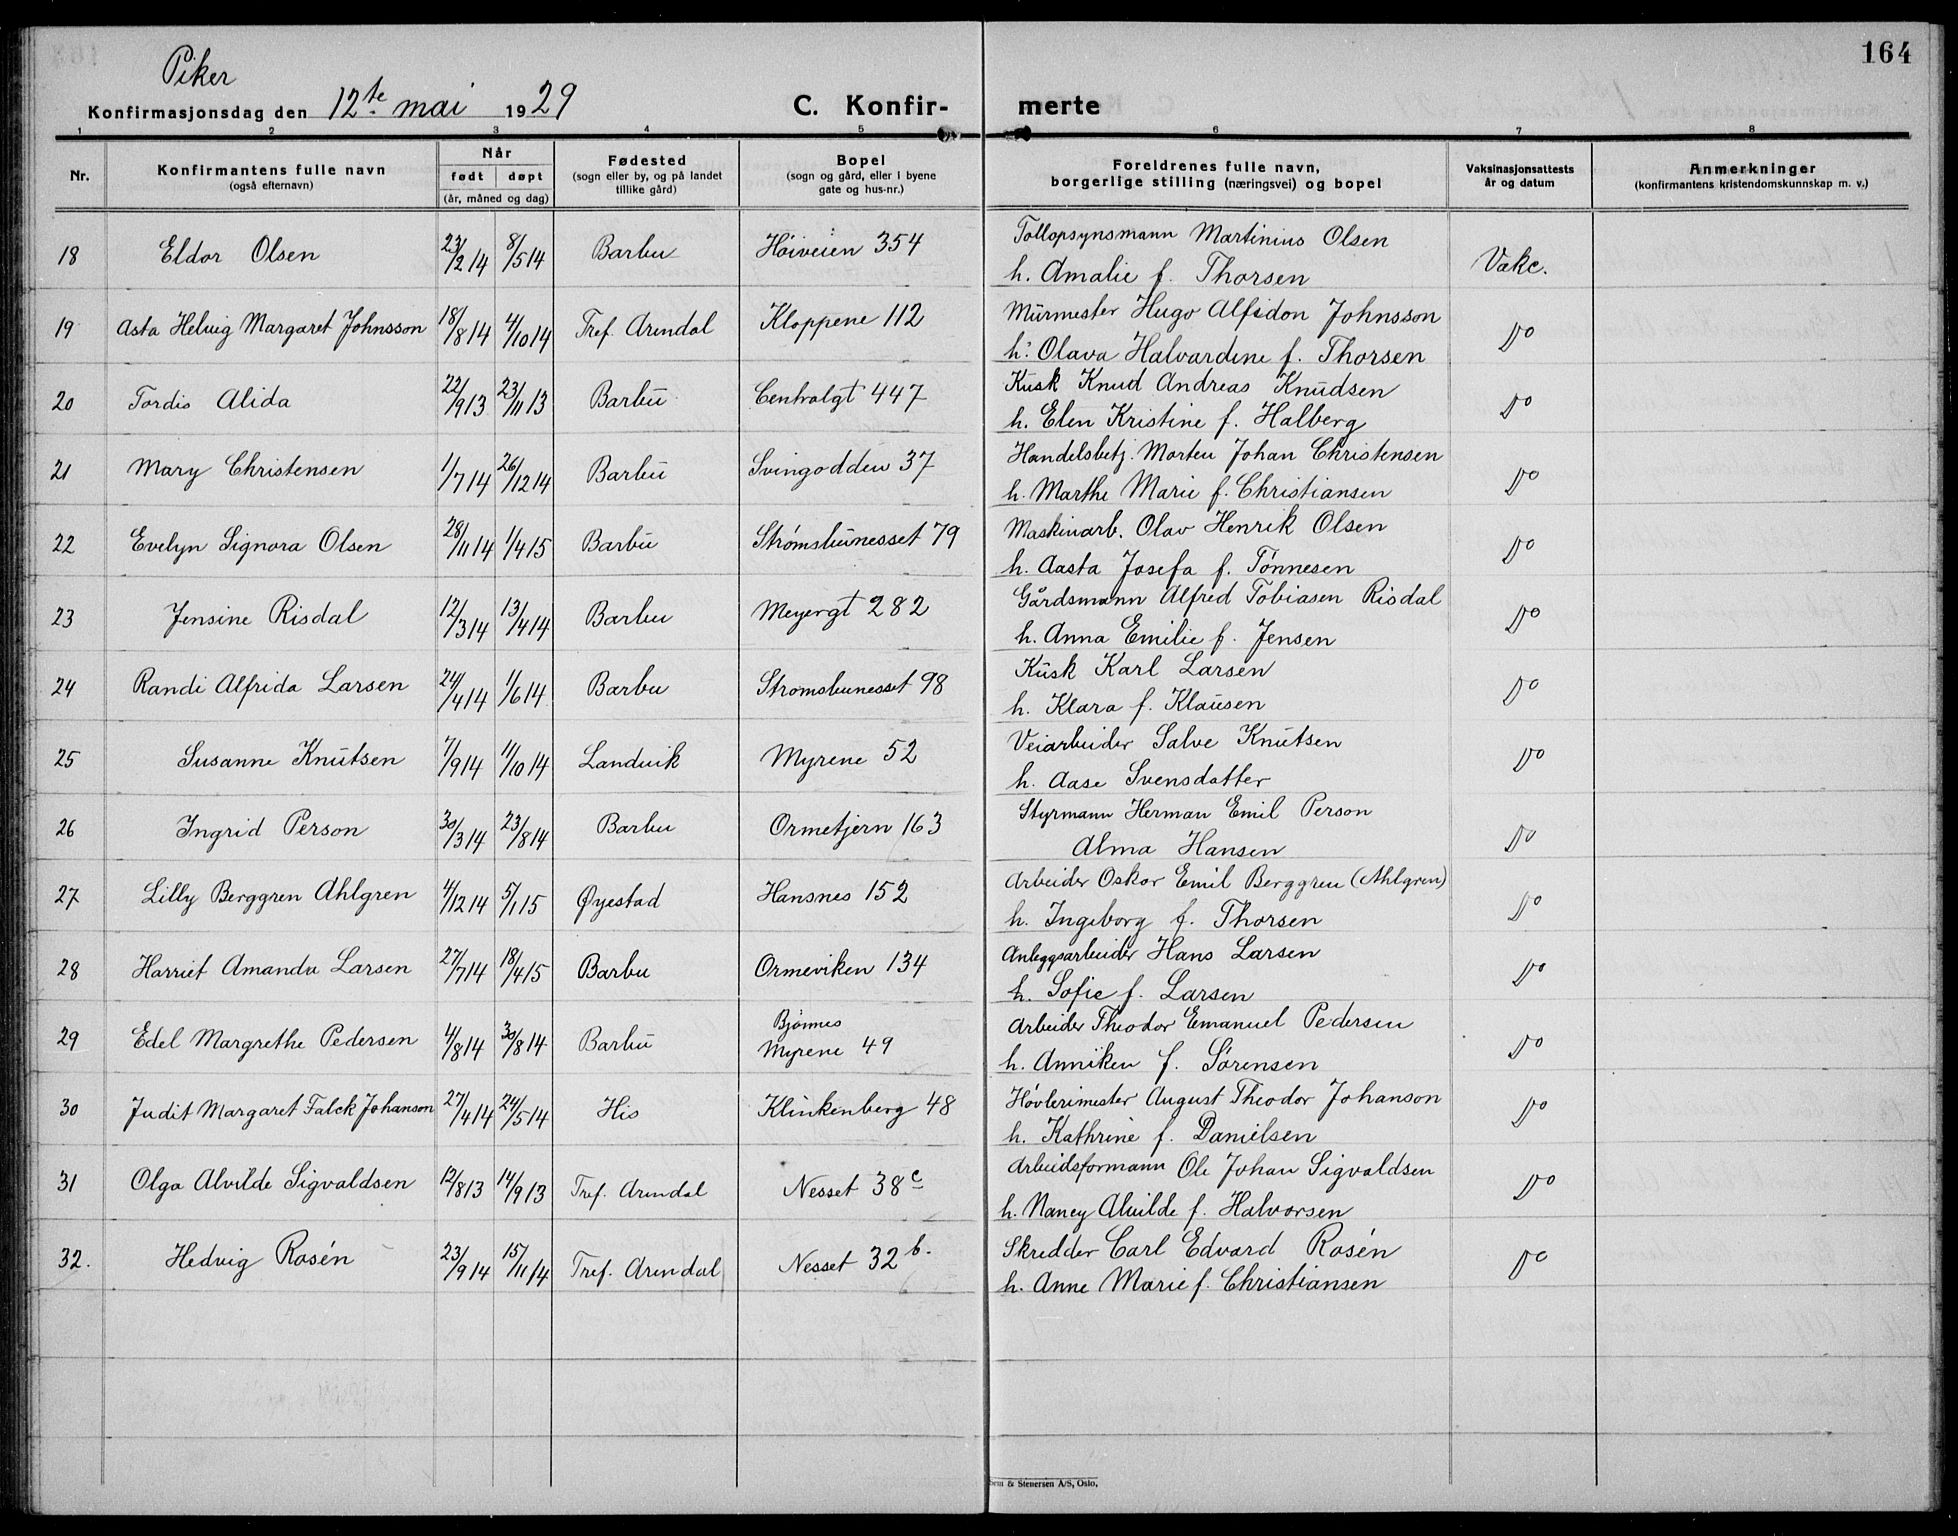 164
Piker
Konfirmasjonsdag den 12te mai 1929 C. Konfir- merte
1 2 3 4 5 6 7 8
Nr. Konfirmantens fulle navn (også efternavn) Når født døpt (år, måned og dag) Fødested (sogn eller by, og på landet tillike gård) Bopel (sogn og gård, eller i byene gate og hus-nr.) Foreldrenes fulle navn, borgerlige stilling (næringsvei) og bopel Vaksinasjonsattests år og datum Anmerkninger (konfirmantens kristendomskunnskap m. v.)
18 Eldor Olsen 23/2 14 8/5 14 Barbu Høiveien 354 Tollopsynsmann Martinius Olsen
h. Amalie f. Thorsen Vakc.
19 Asta Helvig Margaret Johnsson 18/8 14 4/10 14 Tref. Arendal Kloppene 112 Murmester Hugo Alfidon Johnsson
h. Olava Halvardine f. Thorsen Do
20 Tordis Alida 22/9 13 23/11 13 Barbu Centralgt 447 Kusk Knud Andreas Knudsen
h. Elen Kristine f. Halberg Do
21 Mary Christensen 1/7 14 26/12 14 Barbu Svingodden 37 Handelsbetj. Morten Johan Christensen
h. Marthe Marie f. Christiansen Do
22 Evelyn Signora Olsen 28/11 14 1/4 15 Barbu Strømsbunesset 79 Maskinarb. Olav Henrik Olsen
h. Aasta Josefa f. Tønnesen Do
23 Jensine Risdal 12/3 14 13/4 14 Barbu Meyergt 282 Gårdsmann Alfred Tobiasen Risdal
h. Anna Emilie f. Jensen Do
24 Randi Alfrida Larsen 24/4 14 1/6 14 Barbu Strømsbunesset 98 Kusk Karl Larsen
h. Klara f. Klausen Do
25 Susanne Knutsen 7/9 14 11/10 14 Landvik Myrene 52 Veiarbeider Salve Knutsen
h. Aase Svensdatter Do
26 Ingrid Person 30/3 14 23/8 14 Barbu Ormetjern 163 Styrmann Herman Emil Person
Alma Hansen Do
27 Lilly Berggren Ahlgren 4/12 14 5/1 15 Øyestad Hansnes 152 Arbeider Oskar Emil Berggren (Ahlgren)
h. Ingeborg f. Thorsen Do
28 Harriet Amanda Larsen 27/7 14 18/4 15 Barbu Ormeviken 134 Anleggsarbeider Hans Larsen
h. Sofie f. Larsen Do
29 Edel Margrethe Pedersen 4/8 14 30/8 14 Barbu Bjønnes Myrene 49 Arbeider Theodor Emanuel Pedersen
h. Anniken f. Sørensen Do
30 Judit Margaret Falck Johanson 27/4 14 24/5 14 His Klinkenberg 48 Høvlerimester August Theodor Johanson
h. Kathrine f. Danielsen Do
31 Olga Alvilde Sigvaldsen 12/8 13 14/9 13 Tref. Arendal Nesset 38c Arbeidsformann Ole Johan Sigvaldsen
h. Nancy Alvilde f. Halvorsen Do
32. Hedvig Rosén 23/9 14 15/11 14 Tref. Arendal Nesset 32b. Skredder Carl Edvard Rosén
h. Anne Marie f. Christiansen Do
& Stenersen A/S, Oslo.